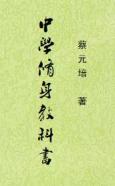 中學修身教科書
蔡元培 著